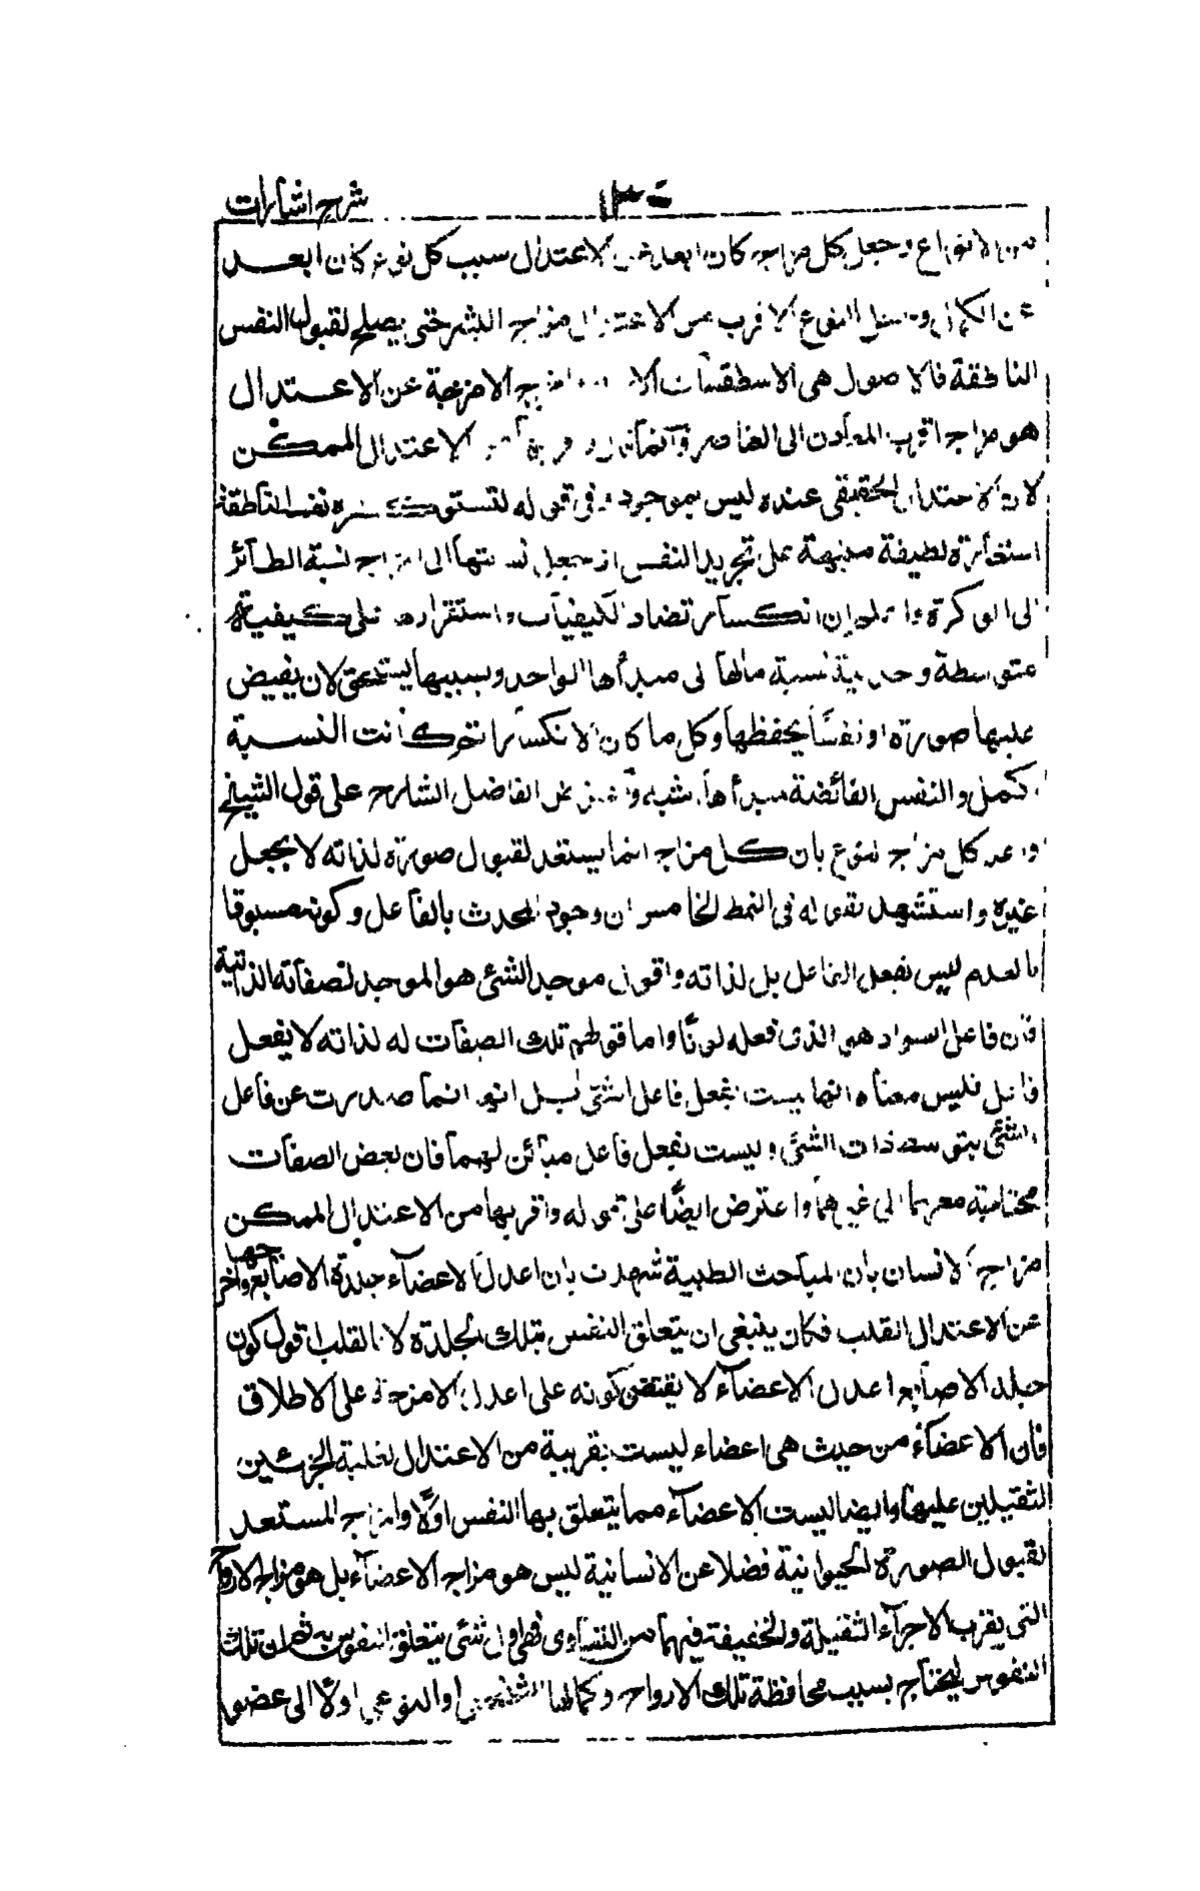 شرح اشارات
١٣٠
من الانواع وجعل كل مزاج كان ابعد عن الاعتدال سبب كل نوع كان ابعد
عن الكمال وجعل النوع الاقرب من الاعتدال مزاج البشر حتى يصلح لقبول النفس
الناطقة فالاصول هى الاسطقسات الامزجة عن الاعتدال
هو مزاج اقرب المعادن الى العناصر وانما قال الاعتدال الممكن
لان الاعتدال الحقيقى عنده ليس بموجود وفى قوله لتستوكره نفسه الناطقة
استعارة لطيفة منبهة على تجريد النفس اذ جعل نسبتها الى المزاج نسبة الطائر
الى الوكر واعلم ان انكسار تضاد الكيفيات واستقرارها على كيفية
متوسطة وحدانية نسبة مالها الى مبدأها الواحد وبسببها يستحق لان يفيض
عليها صورة او نفسا يحفظها وكل ما كان الانكسار اتم كانت النسبة
اكمل والنفس الفائضة بمبدأها اشبه واعترض الفاضل الشارح على قول الشيخ
واعد كل مزاج لنوع بان كل مزاج انما يستعد لقبول صورة لذاته لا بجعل
غيره واستشهد بقوله فى النمط الخامس ان وجود المحدث بالفاعل وكونه مسبوقا
بالعدم ليس بفعل الفاعل بل لذاته واقول موجد الشئ هو الموجد لصفاته الذاتية
فان فاعل السواد هو الذى فعله لونا واما قولهم تلك الصفات له لذاته لا بفعل
فاعل فليس معناه انها ليست بفعل فاعل الشئ بل انها انما صدرت عن فاعل
الشئ بتوسط ذات الشئ وليست بفعل فاعل مبائن لهما فان بعض الصفات
محتاجة معهما الى غيرهما واعترض ايضا على قوله واقربها من الاعتدال الممكن
مزاج الانسان بان المباحث الطبية شهدت بان اعدل الاعضاء جلدة الاصابع واخرجها
عن الاعتدال القلب فكان ينبغى ان يتعلق النفس بتلك الجلدة لا بالقلب اقول كون
جلد الاصابع اعدل الاعضاء لا يقتضى كونه على اعدل الامزجة على الاطلاق
فان الاعضاء من حيث هى اعضاء ليست بقريبة من الاعتدال لغلبة الجزئين
الثقيلين عليها وايضا ليست الاعضاء مما يتعلق بها النفس اولا والمزاج المستعد
لقبول الصورة الحيوانية فضلا عن الانسانية ليس هو مزاج الاعضاء بل هو مزاج الارواح
التى يقرب الاجزاء الثقيلة والخفيفة فيها من التساوى فهى اول شئ يتعلق النفوس به ثم ان تلك
النفوس ليحتاج بسبب محافظة تلك الارواح وكمالها الشخصى او النوعى اولا الى عضو